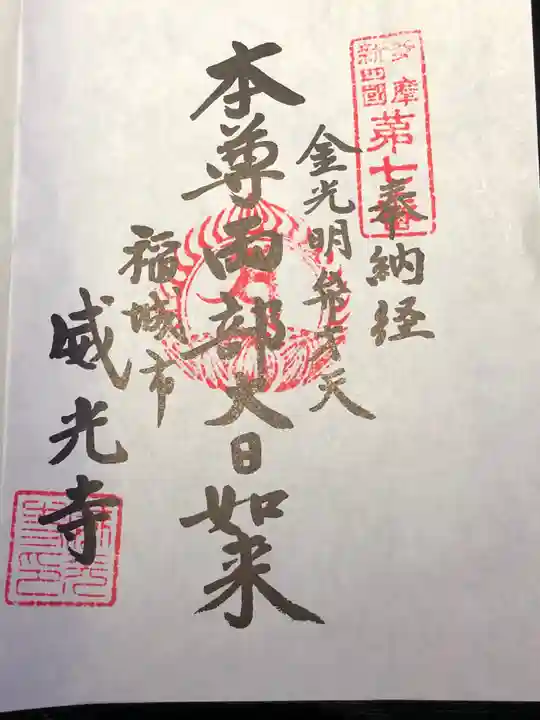 多摩
新四國
第七番
奉納経
金光明辯才天
本尊両部大日如来
稲城市
威光寺